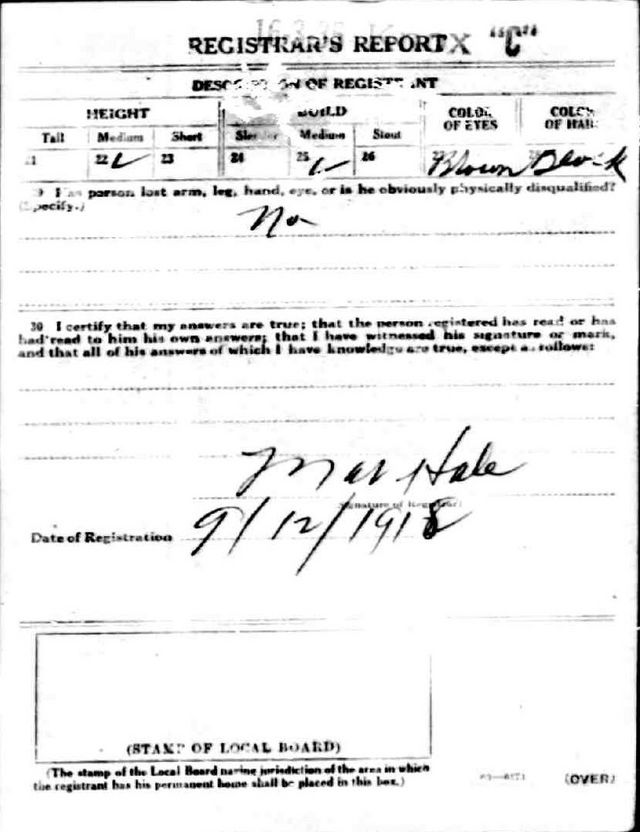 REGISTRAR'S REPORT "C"
DESCRIPTION OF REGISTRANT
HEIGHT BUILD COLOR OF EYES COLOR OF HAIR
Tall Medium Short Slender Medium Stout
21 22 ✓ 23 24 25 ✓ 26 Brown Black
29 Has person lost arm, leg, hand, eye, or is he obviously physically disqualified?
(Specify.)
No
30 I certify that my answers are true; that the person registered has read or has
had read to him his own answers; that I have witnessed his signature or mark,
and that all of his answers of which I have knowledge are true, except as follows:
Hale
Signature of Registrar
Date of Registration 9/12/1918
(STAMP OF LOCAL BOARD)
(The stamp of the Local Board having jurisdiction of the area in which
the registrant has his permanent home shall be placed in this box.)
(OVER)